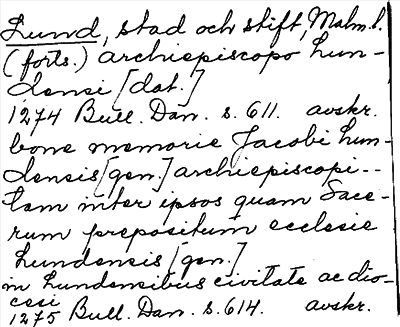 Lund, stad och stift, Malm. l.
(forts.) archiepiscopo Lun-
densi [dat.]
1274 Bull. Dan. s. 611. avskr.
bone memorie Jacobi Lun-
densis [gen.] archiepiscopi--
tam inter ipsos quam Sace-
rum prepositum ecclesie
Lundensis [gen.]
in Lundensibus civitate ac dio-
cesi
1275 Bull. Dan. s. 614. avskr.